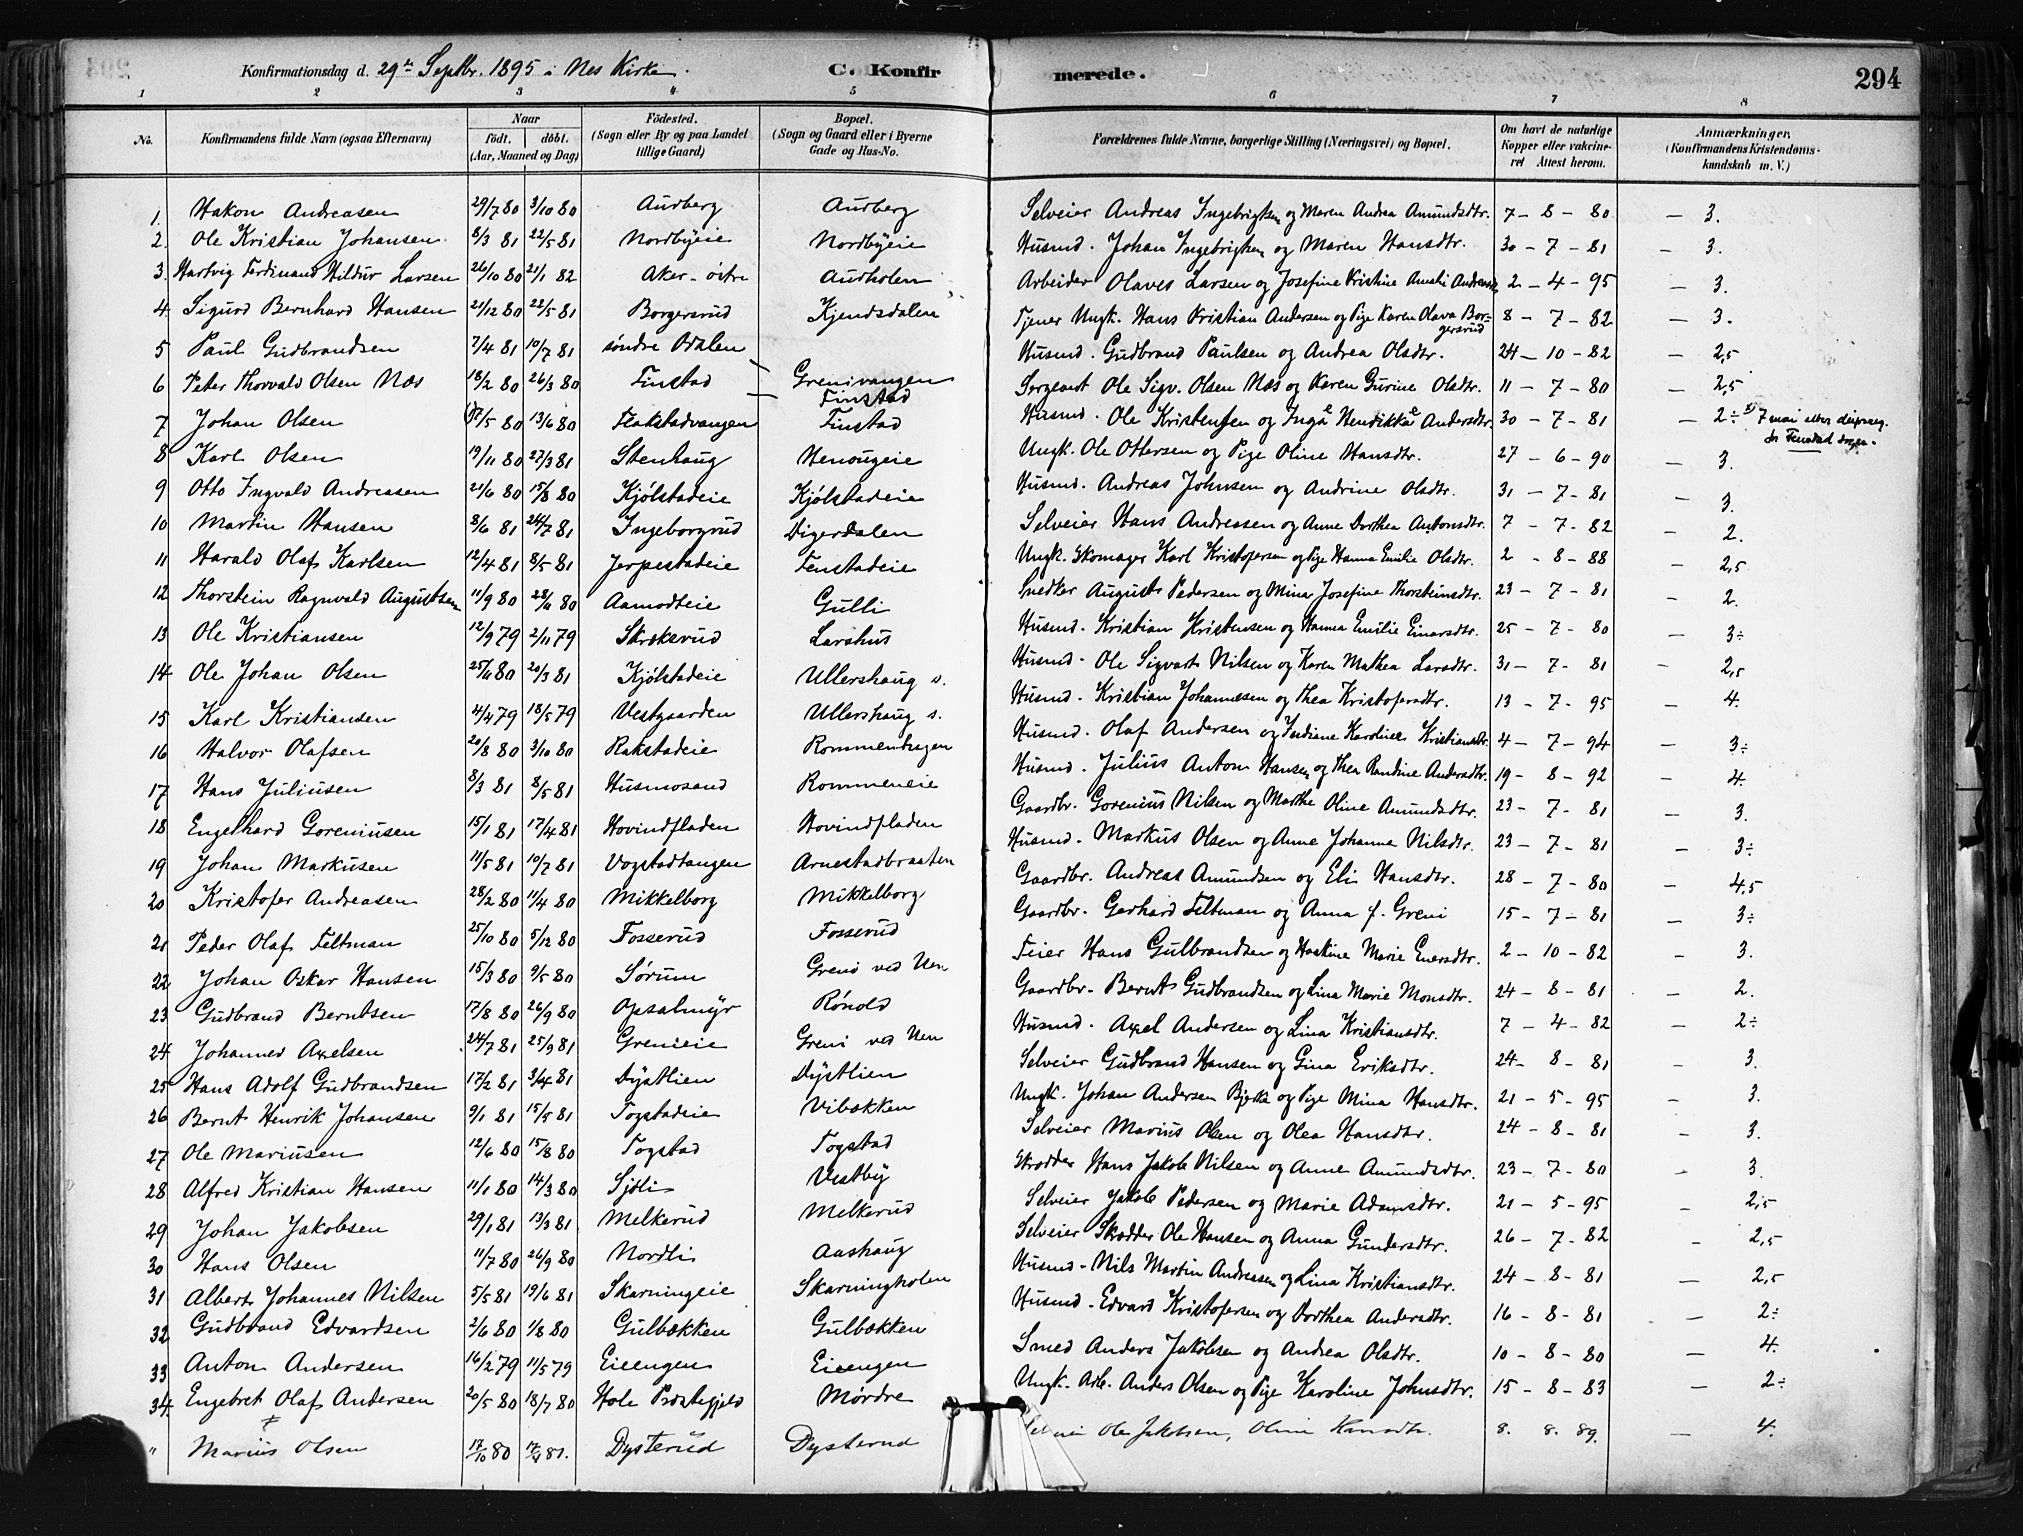 Konfirmationsdag d. 29de Septbr. 1895 i Nes Kirke. C. Konfirmerede. 294
1 2 3 4 5 6 7 8
No. Konfirmandens fulde Navn (ogsaa Efternavn) Naar födt. döbt. (Aar, Maaned og Dag) Födested. (Sogn eller By og paa Landet tillige Gaard) Bopæl. (Sogn og Gaard eller i Byerne Gade og Hus-No. Forældrenes fulde Navne, borgerlige Stilling (Næringsvei) og Bopæl. Om havt de naturlige Kopper eller vakcineret Attest herom. Anmærkninger. (Konfirmandens Kristendomskundskab m. V.)
1. Hakon Andreasen 29/7 80 3/10 80 Aurberg Aurberg Selveier Andreas Ingebrigtsen og Maren Andrea Amundsdtr. 7 - 8 - 80 — 3.
2. Ole Kristian Johansen 8/3 81 22/5 81 Nordbyeie Nordbyeie Husmd. Johan Ingebrigtsen og Maren Hansdtr. 30 - 7 - 81 — 3.
3. Hartvig Ferdinand Hildur Larsen 26/10 80 21/1 82 Aker - östre Audholen Arbeider Olaves Larsen og Josefine Kristine Amalie 2 - 4 - 95 — 3.
4. Sigurd Bernhard Hansen 21/12 80 22/5 81 Borgersrud Kjendsdalen Tjener Ungk. Hans Kristian Andersen og Pige Karen Olava Borgersrud 8 - 7 - 82 — 3.
5 Paul Gudbrandsen 7/4 81 10/7 81 söndre Odalen Husmd. Gudbrand Paulsen og Andrea Olsdtr. 24 - 10 - 82 — 2,5
6 Peter Thorvald Olsen Næs 18/2 80 26/3 80 Finstad Grenivangen Finstad Sergeant Ole Sigv. Olsen Næs og Karen Gurine Olsdtr. 11 - 7 - 80 — 2,5
7 Johan Olsen /5 80 13/6 80 Flakstadvangen Finstad Husmd. Ole Kristensen og Inga Hendikka Andersdtr. 30 - 7 - 81 — 2÷ 7 mai efter
8 Karl Olsen 19/11 80 27/3 81 Stenhaug Henougeie Ungk. Ole Ottersen og Pige Oline Hansdtr. 27 - 6 - 90 — 3.
9 Otto Ingvald Andreasen 21/6 80 15/8 80 Kjölstadeie Kjölstadeie Husmd. Andreas Johnsen og Andrine Olsdtr. 31 - 7 - 81 — 3.
10 Martin Hansen 8/6 81 24/7 81 Ingeborgrud Digerdalen Selveier Hans Andreasen og Anne Dorthea Antonsdtr. 7 - 7 - 82 — 2.
11 Harald Olaf Karlsen 12/4 81 8/5 81 Jerpestadeie Fenstadeie Ungk. Skomager Karl Kristofersen og Pige Hanna Emilie Olsdtr. 2 - 8 - 88 — 2,5
12 Thorstein Ragnvald Augustsen 11/9 80 28/11 80 Aamodteie Gulli Snedker August Pedersen og Mina Josefine Thorsteinsdtr. 23 - 7 - 81 — 2.
13 Ole Kristiansen 12/9 79 2/11 79 Skræksrud Larshus Husmd. Kristian Kristensen og Hanna Emilie Einarsdtr. 25 - 7 - 80 — 3÷
14 Ole Johan Olsen 25/11 80 20/3 81 Kjölstadeie Ullershaug s. Husmd. Ole Sigvart Nilsen og Karen Mathea Larsdtr. 31 - 7 - 81 — 2,5
15 Karl Kristiansen 4/4 79 18/5 79 Vestgaarden Ullershaug s. Husmd. Kristian Johannesen og Thea Kristofersdtr. 13 - 7 - 95 — 4.
16 Halvor Olafsen 20/8 80 3/10 80 Rakstadeie Rommenhagen Husmd. Olaf Andersen og Karoline Kristiansdtr. 4 - 7 - 94 — 3÷
17 Hans Juliusen 8/3 81 8/5 81 Husmosand Rommeneie Husmd. Julius Anton Hansen og Thea Randine Andersdtr. 19 - 8 - 92 — 4.
18 Engelhard Goreniusen 15/1 81 17/4 81 Hovindfladen Hovindfladen Gaardbr. Gorenius Nilsen og Marthe Oline Amundsdtr. 23 - 7 - 81 — 3.
19 Johan Markusen 11/5 81 10/7 81 Vogstadtangen Arnestadbraaten Husmd. Markus Olsen og Anne Johanne Nilsdtr. 23 - 7 - 81 — 3÷
20 Kristofer Andreasen 28/2 80 11/4 80 Mikkelborg Mikkelborg Gaardbr. Andreas Amundsen og Eli Hansdtr. 28 - 7 - 80 — 4,5
21 Peder Olaf Feltman 25/10 80 5/12 80 Fosserud Fosserud Gaardbr. Gerhard Feltman og Anna f. Greni 15 - 7 - 81 — 3÷
22 Johan Oskar Hansen 15/3 80 9/5 80 Sörum Greni ved Uen Feier Hans Gulbrandsen og Haskine Marie Enersdtr. 2 - 10 - 82 — 3.
23 Gudbrand Berntsen 17/8 80 26/9 80 Opsalmyr Rönold Gaardbr. Bernt Gudbrandsen og Lina Marie Monsdtr. 24 - 8 - 81 — 2.
24 Johannes Axelsen 24/7 81 25/9 81 Grenieie Greni ved Uen Husmd. Axel Andersen og Lina Kristiansdtr. 7 - 4 - 82 — 2÷
25 Hans Adolf Gudbrandsen 17/2 81 3/4 81 Dystlien Dystlien Selveier Gudbrand Hansen og Gina Eriksdtr. 24 - 8 - 81 — 3.
26 Bernt Henrik Johansen 9/1 81 15/5 81 Togstadeie Vibækken Ungk. Johan Andersen Bjerke og Pige Mina Hansdtr. 21 - 5 - 95 — 3.
27 Ole Mariusen 12/6 80 15/8 80 Togstad Togstad Selveier Marius Olsen og Olea Hansdtr. 24 - 8 - 81 — 3.
28 Alfred Kristian Hansen 11/1 80 14/3 80 Sjöli Vestby Skrædder Hans Jakob Nilsen og Anne Amundsdtr. 23 - 7 - 80 — 3.
29 Johan Jakobsen 29/1 81 13/3 81 Melkerud Melkerud Selveier Jakob Pedersen og Marie Adamsdtr. 21 - 5 - 95 — 2,5
30 Hans Olsen 11/7 80 26/9 80 Nordli Aashaug Selveier Skrædder Ole Hansen og Anna Gundersdtr. 26 - 7 - 82 — 2,5
31 Albert Johannes Nilsen 5/5 81 19/6 81 Skarningeie Skarningholen Husmd. Nils Martin Andreasen og Lina Kristiansdtr. 24 - 8 - 81 — 2,5
32 Gudbrand Edvardsen 2/6 80 1/8 80 Gulbækken Gulbækken Husmd. Edvard Kristofersen og Dorthea Andersdtr. 16 - 8 - 81 — 2÷
33 Anton Andersen 16/2 79 11/5 79 Eieengen Eieengen Smed Anders Jakobsen og Andrea Olsdtr. 10 - 8 - 80 — 4.
34. Engebret Olaf Andersen 20/5 80 18/7 80 Hole Præstegjeld Mørdre Ungk. Arb. Anders Olsen og Pige Karoline Johnsdtr. 15 - 8 - 83 — 2÷
" Marius Olsen 17/10 80 17/4 81. Dysterud Dysterud Ole Jakobsen, Oline Hansdtr. 8. 8. 89. — 4.